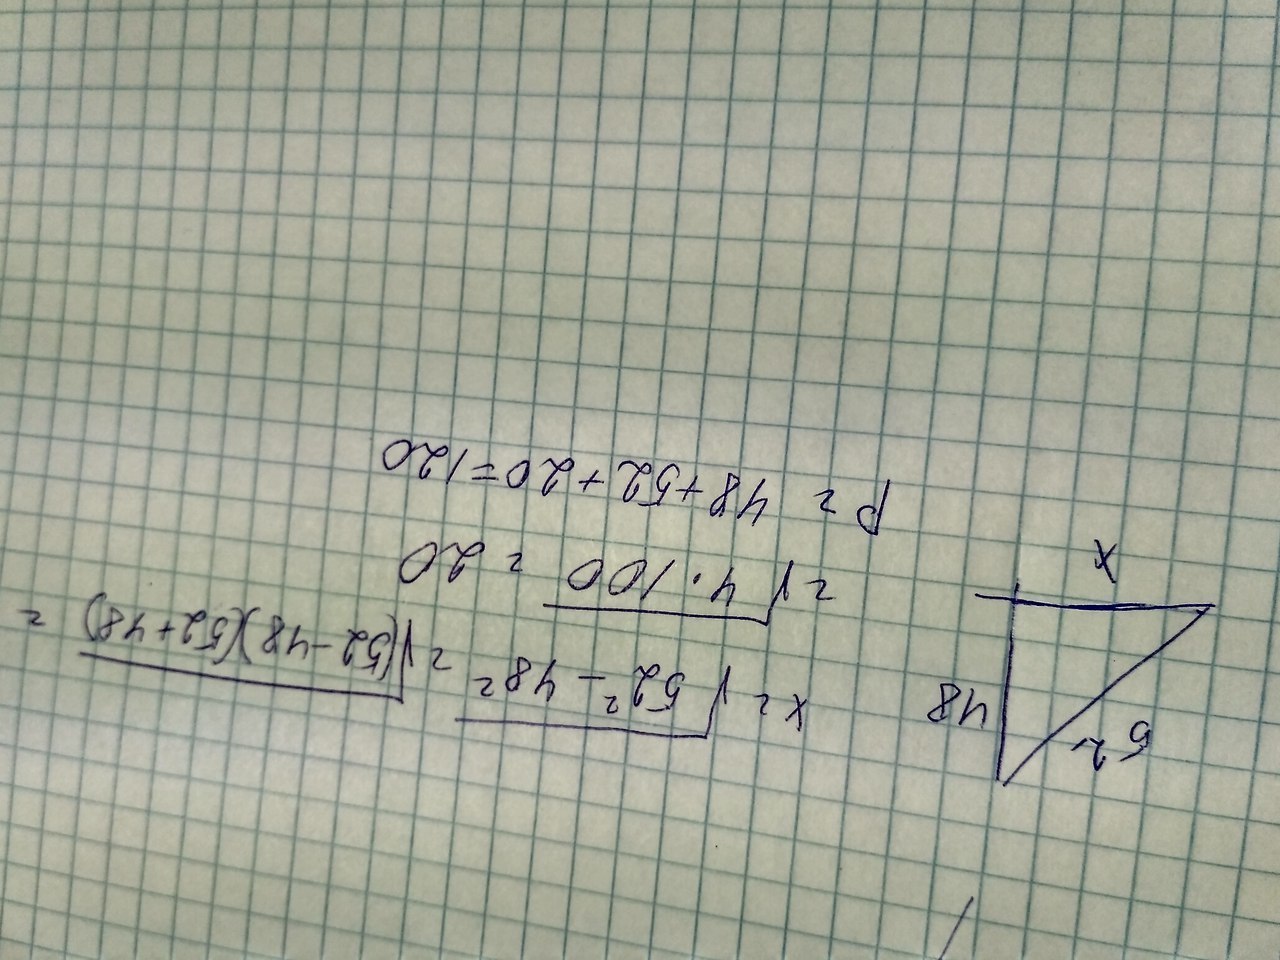 52
48
x
x = √52² - 48² = √(52-48)(52+48) =
= √4·100 = 20
P = 48+52+20=120